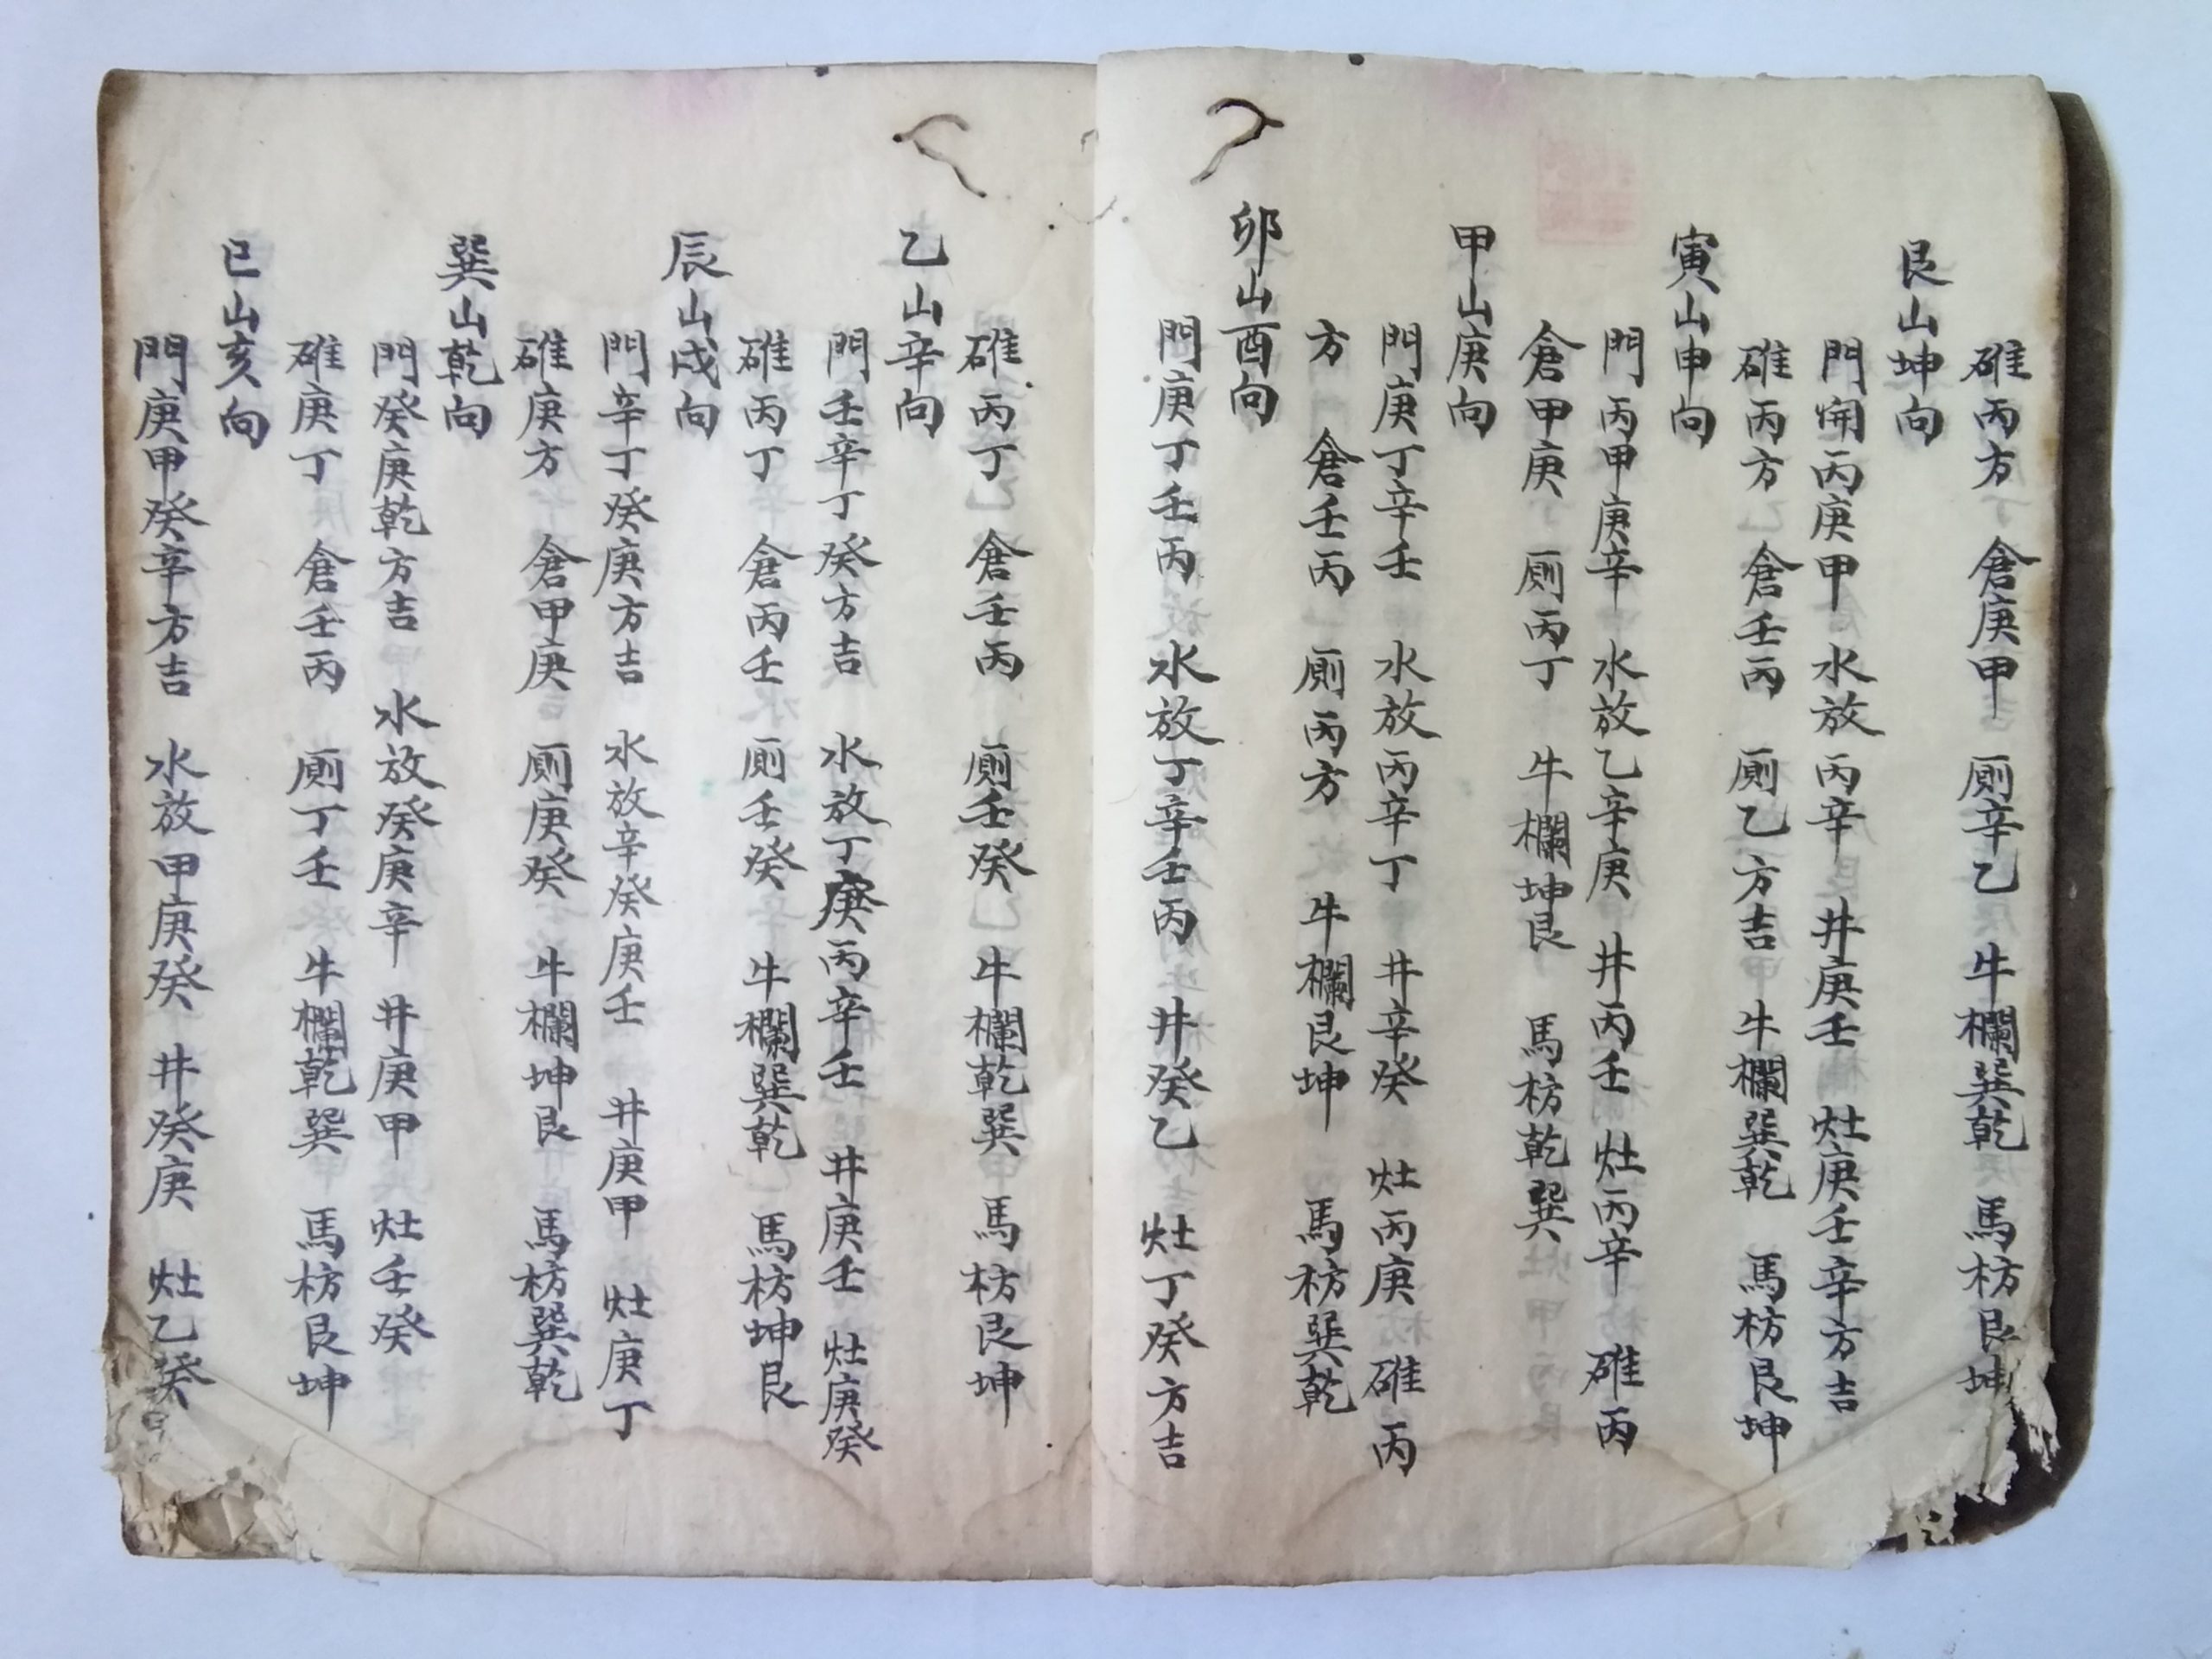 碓丙方　倉庚甲　厠辛乙　牛欄巽乾　馬枋艮坤
艮山坤向
門開丙庚甲　水放丙辛　井庚壬　灶庚壬辛方吉
碓丙方　倉壬丙　厠乙方吉　牛欄巽乾　馬枋艮坤
寅山申向
門丙甲庚辛　水放乙辛庚　井丙壬　灶丙辛　碓丙
倉甲庚　厠丙丁　牛欄坤艮　馬枋乾巽
甲山庚向
門庚丁辛壬　水放丙辛丁　井辛癸　灶丙庚　碓丙
方　倉壬丙　厠丙方　牛欄艮坤　馬枋巽乾
卯山酉向
門庚丁壬丙　水放丁辛壬丙　井癸乙　灶丁癸方吉
碓丙丁　倉壬丙　厠壬癸　牛欄乾巽　馬枋艮坤
乙山辛向
門壬辛丁癸方吉　水放丁庚丙辛壬　井庚壬　灶庚癸
碓丙丁　倉丙壬　厠壬癸　牛欄巽乾　馬枋坤艮
辰山戌向
門辛丁癸庚方吉　水放辛癸庚壬　井庚甲　灶庚丁
碓庚方　倉甲庚　厠庚癸　牛欄坤艮　馬枋巽乾
巽山乾向
門癸庚乾方吉　水放癸庚辛　井庚甲　灶壬癸
碓庚丁　倉壬丙　厠丁壬　牛欄乾巽　馬枋艮坤
巳山亥向
門庚甲癸辛方吉　水放甲庚癸　井癸庚　灶乙癸